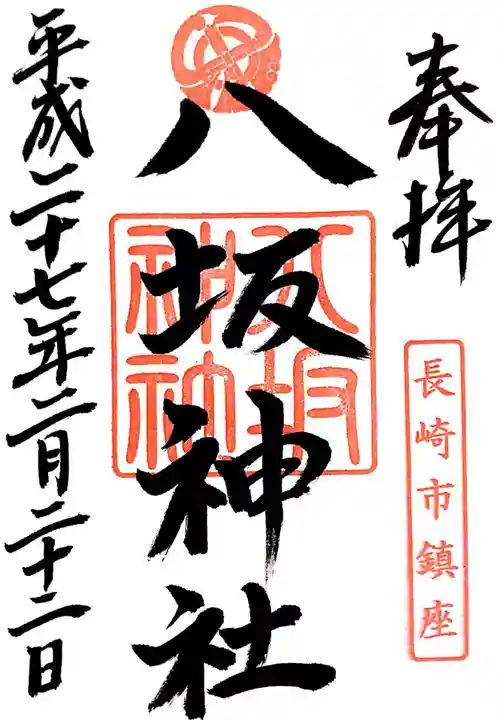 奉拝
長崎市鎮座
八坂神社
八坂神社
平成二十七年二月二十二日